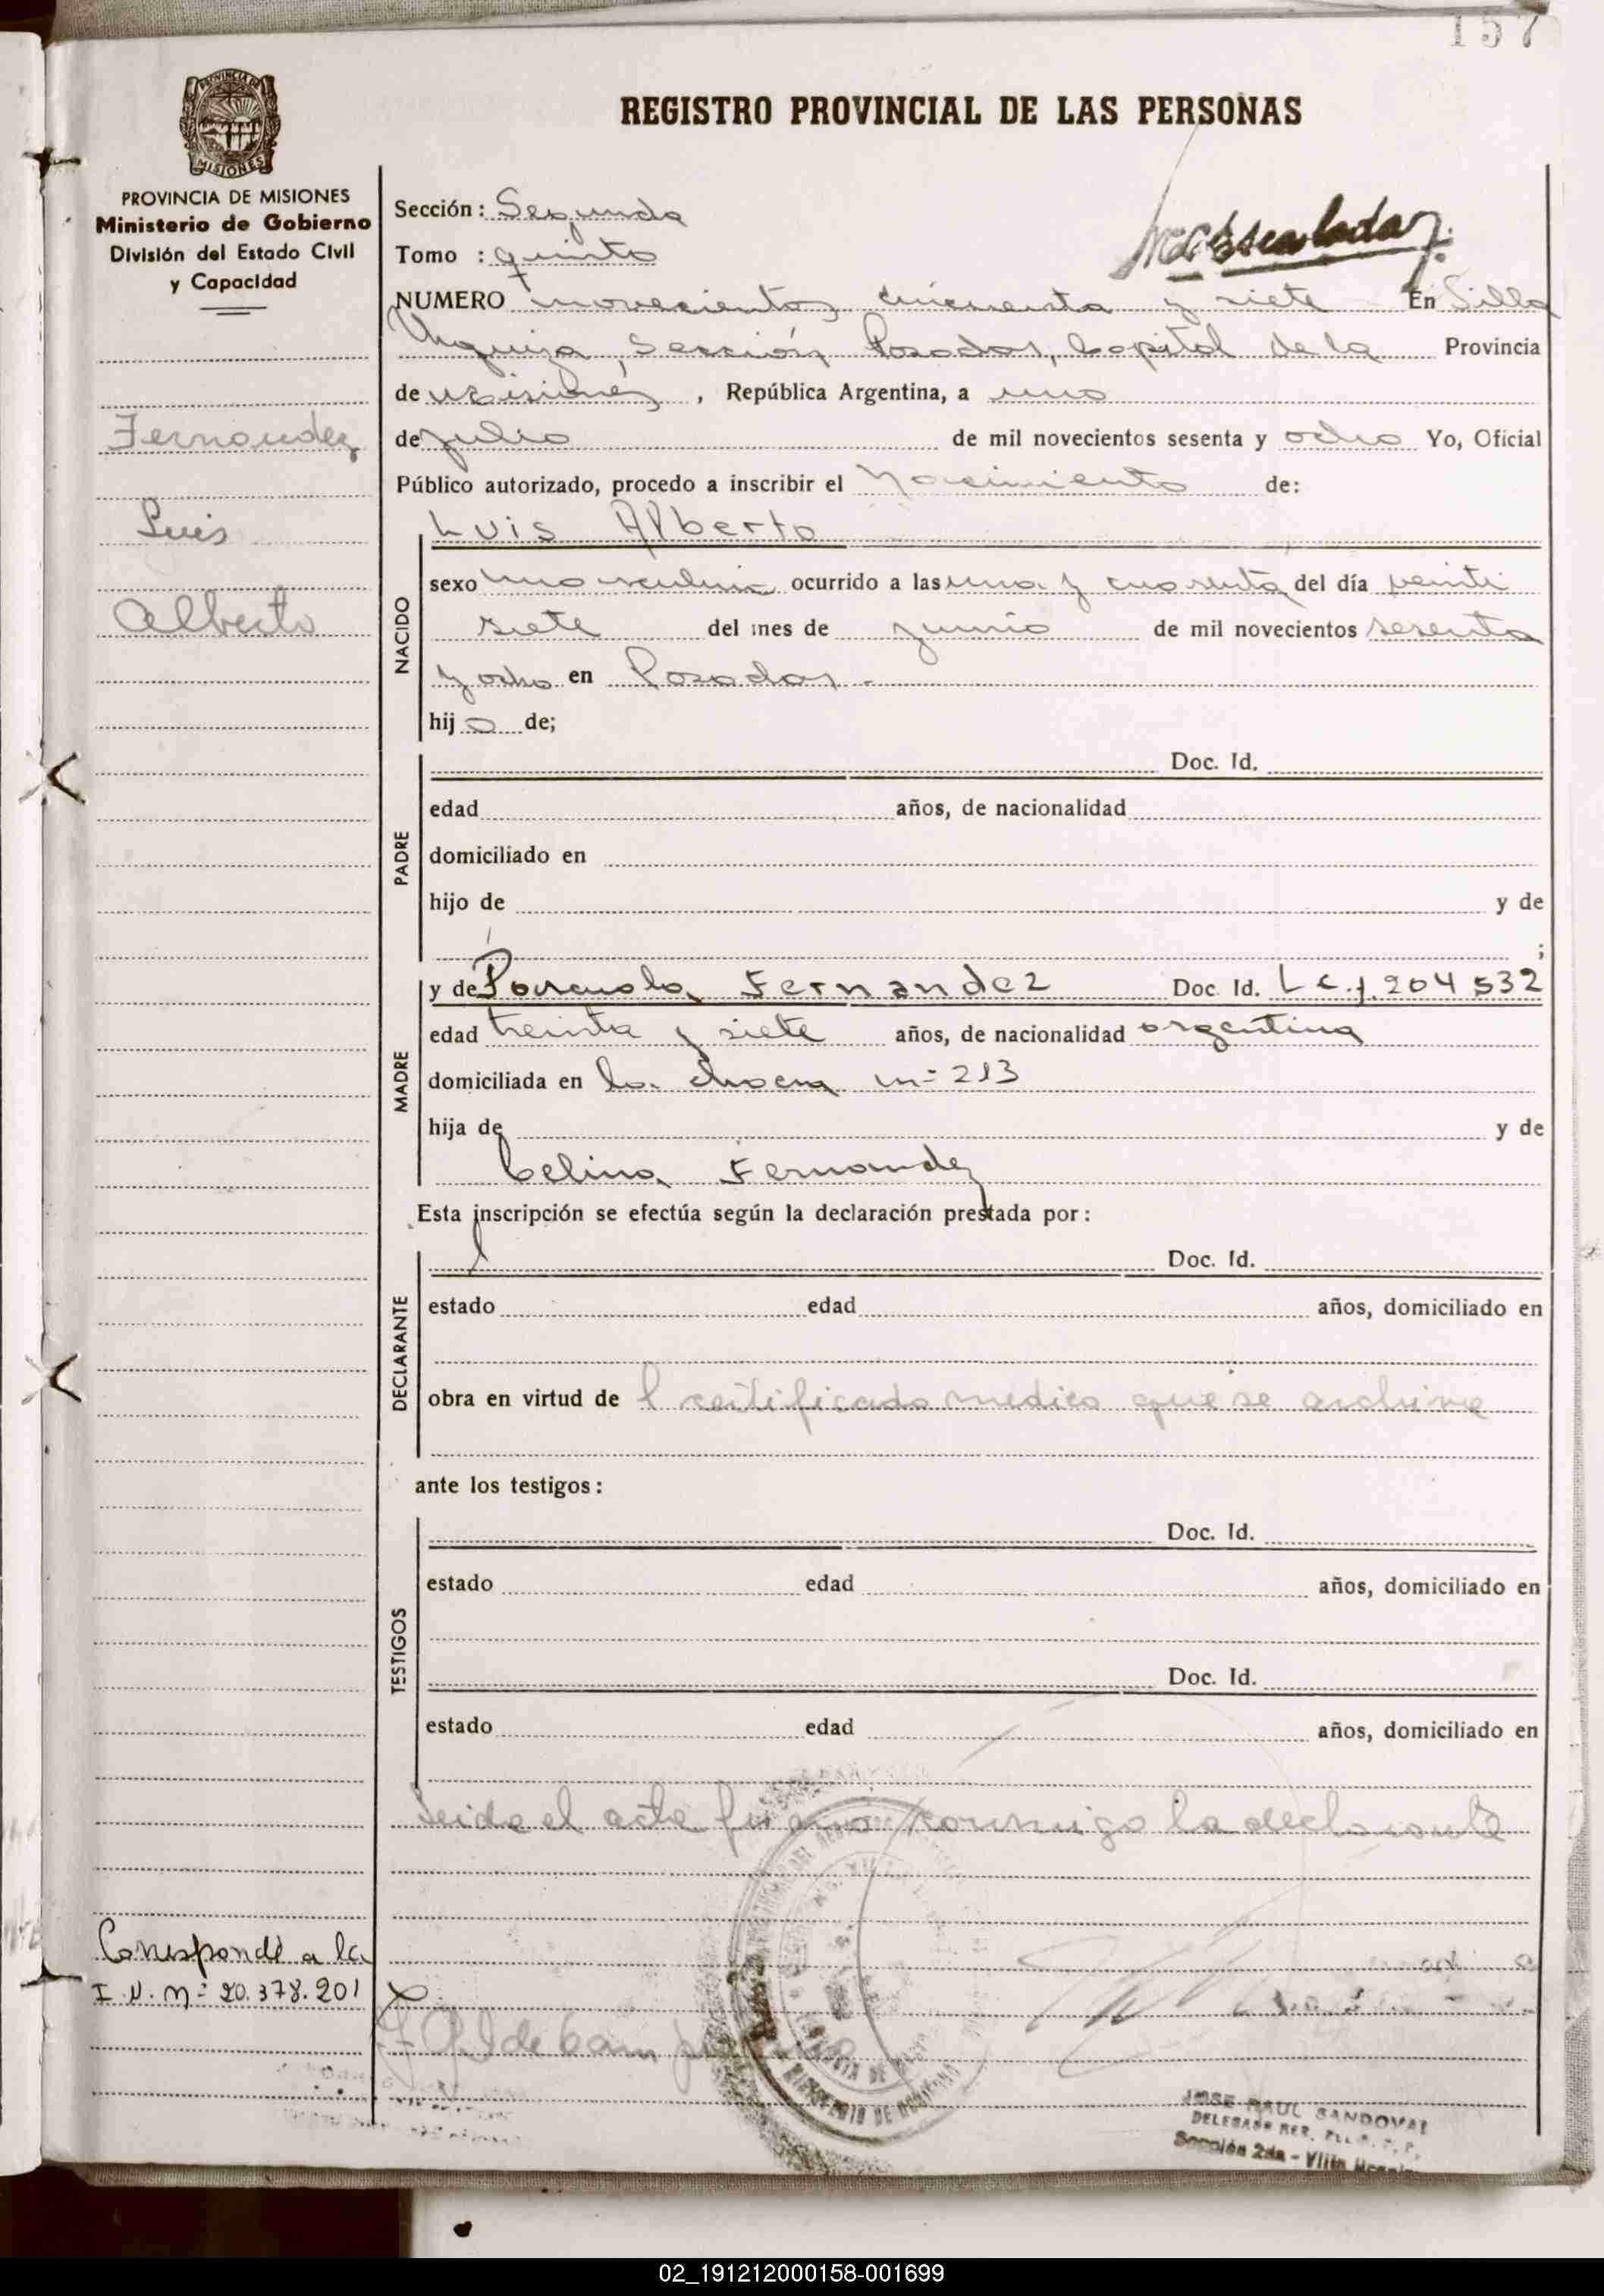 157
MISIONES
PROVINCIA DE MISIONES
Ministerio de Gobierno
División del Estado Civil
y Capacidad
REGISTRO PROVINCIAL DE LAS PERSONAS
Sección: Segunda
Tomo : quinto
NUMERO novecientos cincuenta y siete En Villa
Urquiza, Sección Posadas, Capital de la Provincia
de Misiones, República Argentina, a uno
de julio de mil novecientos sesenta y ocho Yo, Oficial
Público autorizado, procedo a inscribir el Nacimiento de:
Fernandez
Luis
Alberto
NACIDO
Luis Alberto
sexo masculino ocurrido a las una y cuarenta del día veinti
siete del mes de junio de mil novecientos sesenta
y ocho en Posadas.-
hijo de;
PADRE
Doc. Id.
edad años, de nacionalidad
domiciliado en
hijo de y de
;
MADRE
y de Fernandez Doc. Id. L c. 1.204 532
edad treinta y siete años, de nacionalidad argentina
domiciliada en la chacra n= 213
hija de y de
Celina Fernandez
Esta inscripción se efectúa según la declaración prestada por:
DECLARANTE
Doc. Id.
estado edad años, domiciliado en
obra en virtud de l certificado medico que se archiva
ante los testigos:
TESTIGOS
Doc. Id.
estado edad años, domiciliado en
Doc. Id.
estado edad años, domiciliado en
Leida el acta firmó conmigo la declarante
Corresponde a la
I.N. n= 20.378.201
JOSE RAUL SANDOVAL
Sección 2da - Villa
02_191212000158-001699